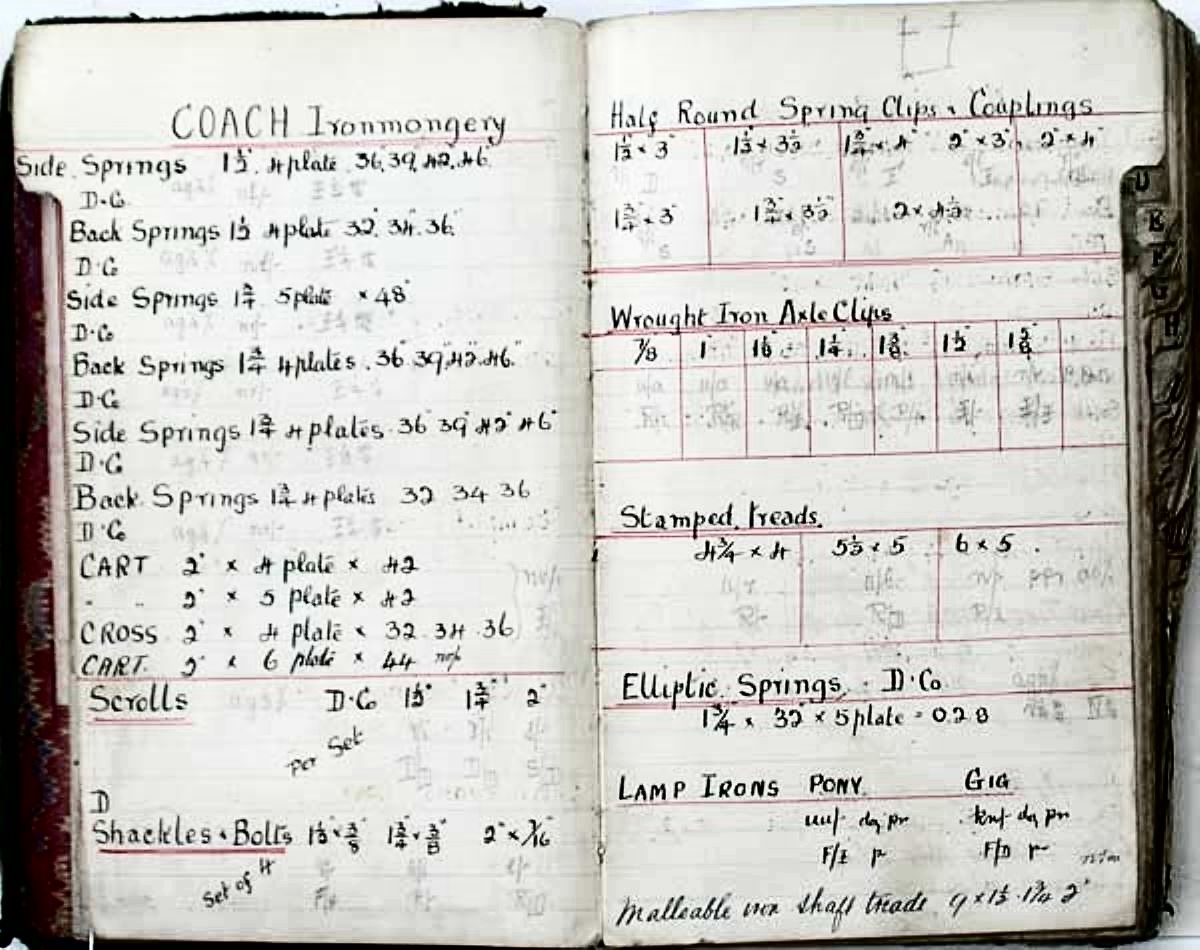 COACH Ironmongery
Side Springs 1½" 4 plate 36" 39" 42" 46"
D·Co
Back Springs 1½ 4 plate 32" 34" 36"
D·Co
Side Springs 1¾ 5 plate × 48"
D·Co
Back Springs 1¾ 4 plates 36" 39" 42" 46"
D·Co
Side Springs 1¾ 4 plates 36" 39" 42" 46"
D·Co
Back Springs 1¾ 4 plates 32 34 36
D·Co
CART 2" × 4 plate × 42
" " 2" × 5 plate × 42
CROSS 2" × 4 plate × 32 34 36
CART 2" × 6 plate × 44
Scrolls D·Co 1½" 1¾" 2"
per Set
D
Shackles & Bolts 1½ × ⅜ 1¾ × ⅜ 2" × 7/16
Set of 4
Half Round Spring Clips & Couplings
1½ × 3" 1½ × 3½ 1¾ × 4" 2" × 3" 2" × 4
1¾ × 3" 1¾ × 3½ 2 × 4½
Wrought Iron Axle Clips
7/8 1" 1⅛ 1¼ 1⅜ 1½ 1⅝
Stamped treads
4¾ × 4 5½ × 5 6 × 5
Elliptic Springs D·Co
1¾ × 32 × 5 plate = 0.28
LAMP IRONS PONY GIG
dg pr dg pr
F/E F/D
Malleable iron shaft treads 9 × 1½ 1¾ 2"
U
E
F
G
H